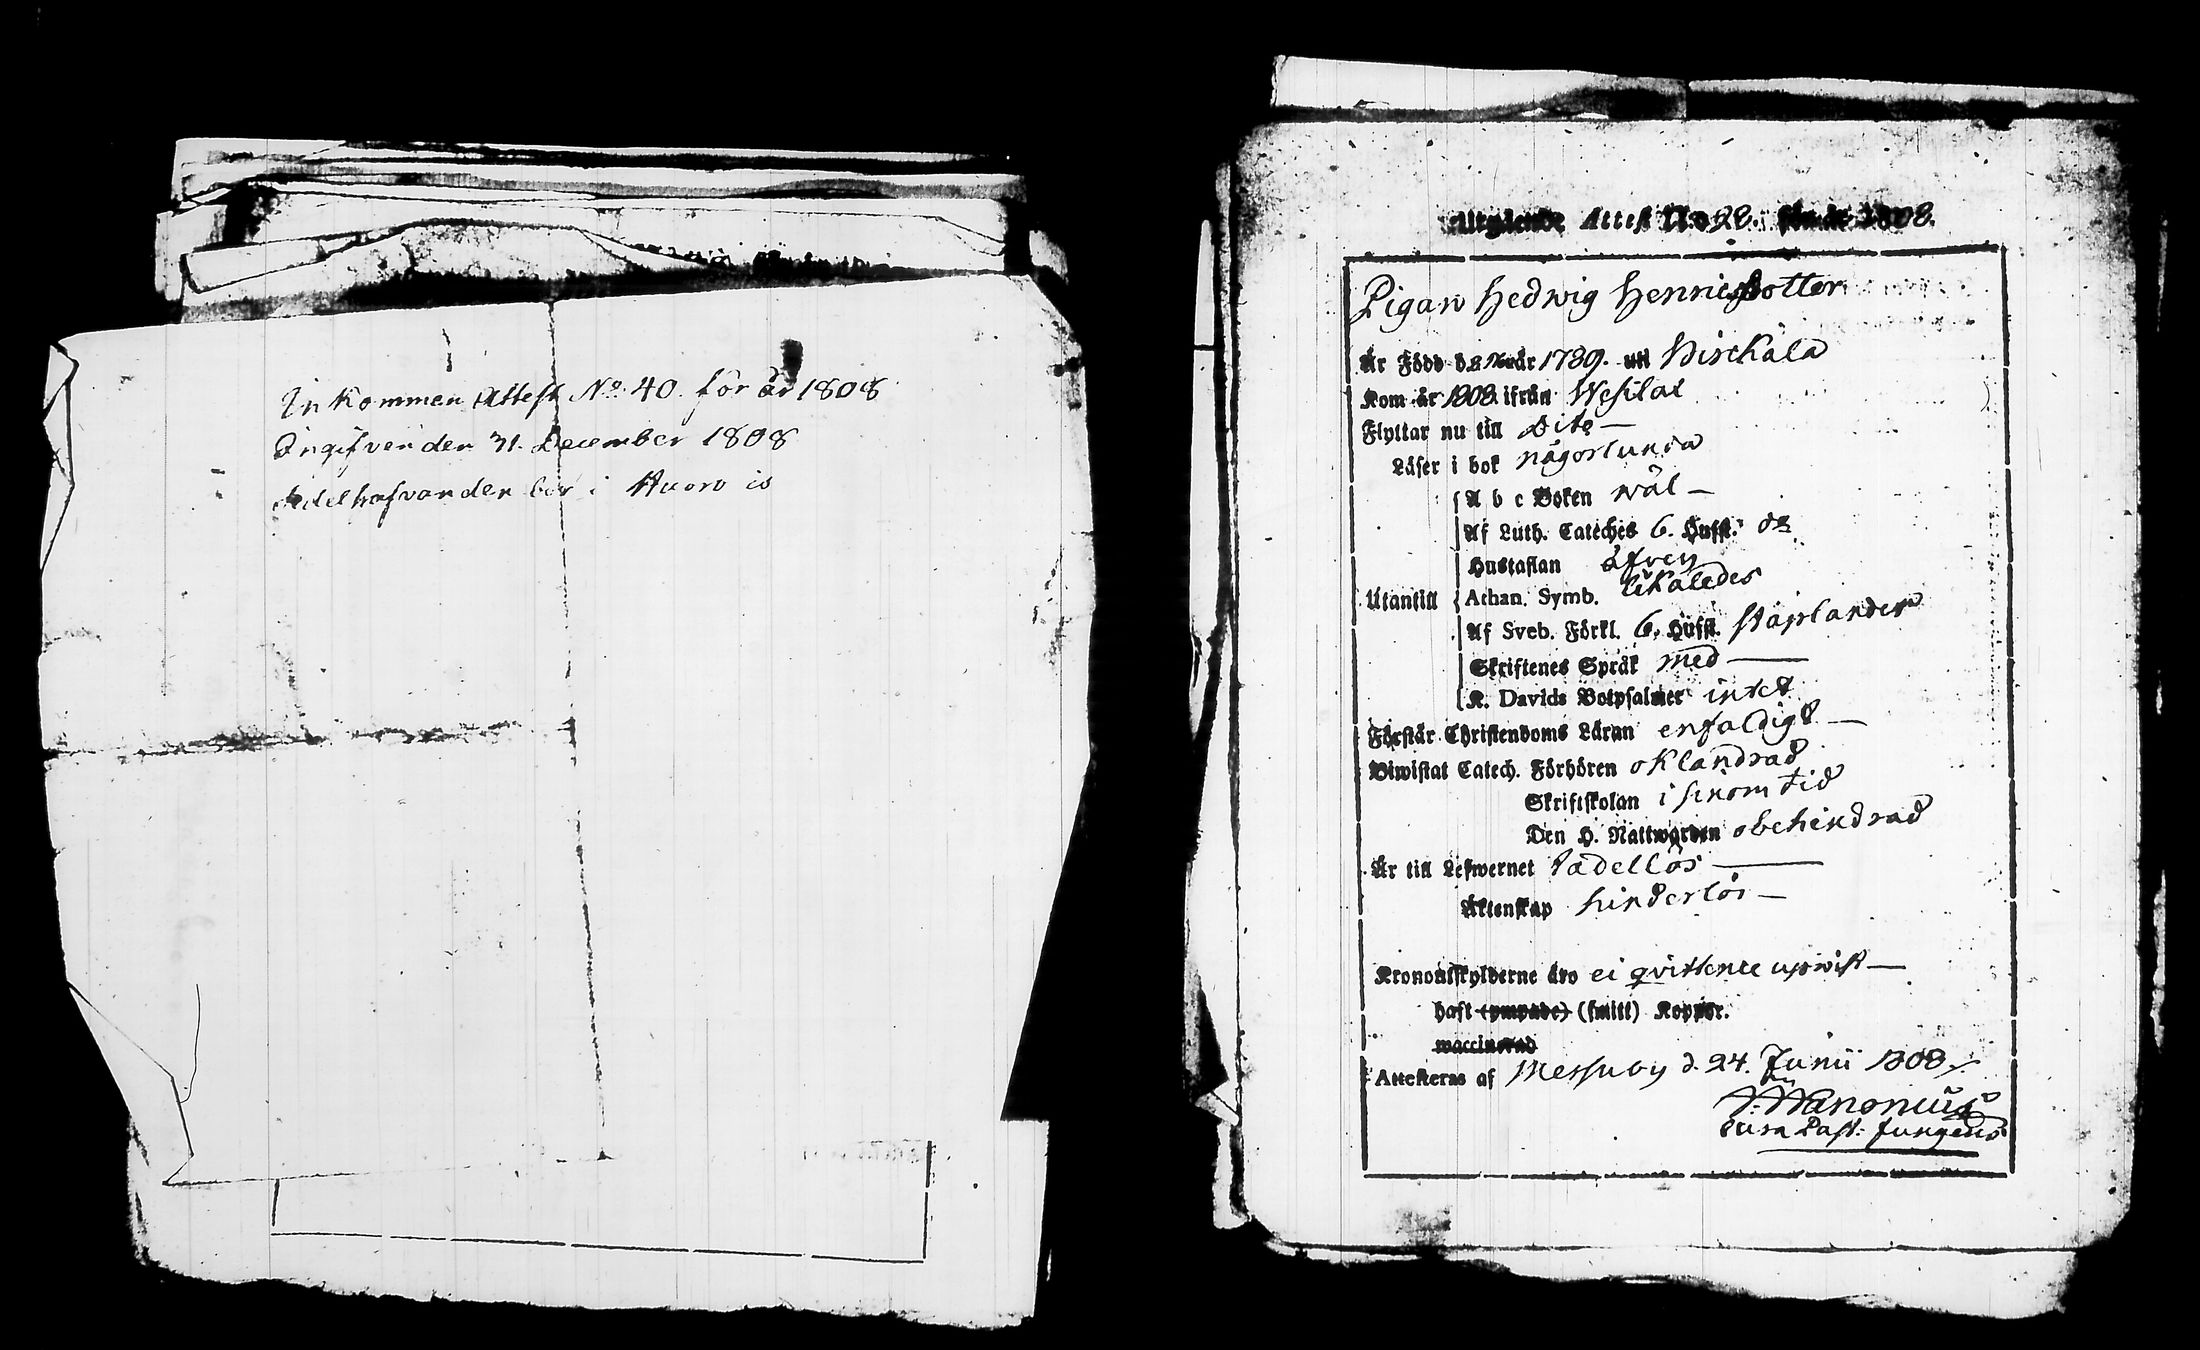 Inkommen Attest No. 40. för år 1808
Ingifven den 31. December 1808
bor i
Utgående Attest No 28. för år 1808.
Pigan Hedwig Henricsdotter
Är Född d. 2 Nov år 1789. uti Hirckälä
Kom år 1808 ifrån Westlax
Flyttar nu till dito —
Läser i bok någorlunda
A b c Boken wäl —
Af Luth. Cateches 6. Hufst. do
Hustaflan äfven
Utantill Athan. Symb. likaledes
Af Sveb. Förkl. 6. Hufst. staplander
Skriftenes Språk med —
K. Davids Botpsalmer intet
Förstår Christendoms Läran enfaldigt —
Biwistat Catech. Förhören oklandrad
Skriftskolan i sinom tid
Den H. Nattwarden obehindrad
Är till Lefwernet tadellös —
Äktenskap hinderlös —
Kronoutskylderne äro ei qvittence upwist —
haft (ympade) (smitt) Koppor.
waccinerad
Attesteras af Messuby d. 24. Junii 1808.
Cura Past: fungens